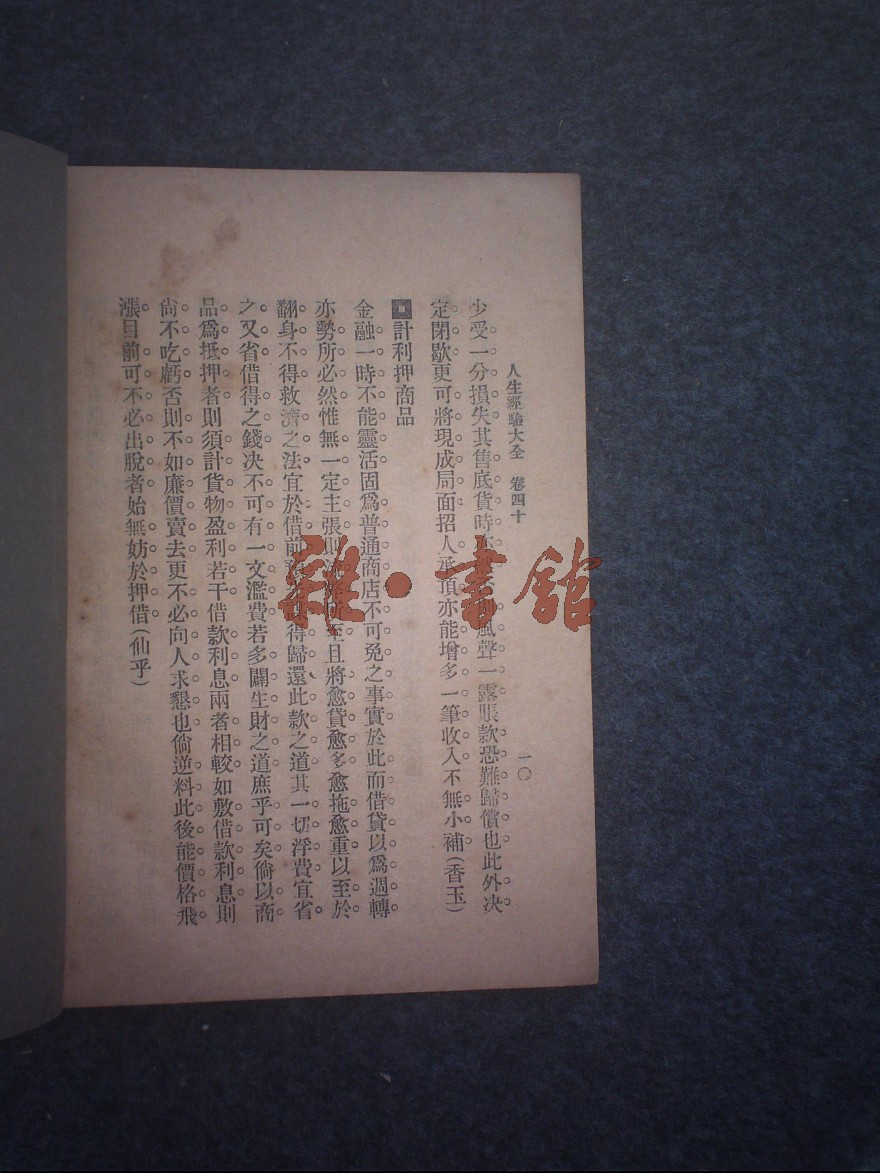 人生經驗大全 卷四十 一〇
少受一分損失其售底貨時亦 風聲一露賬款恐難歸償也此外决
定閉歇更可將現成局面招人承頂亦能增多一筆收入不無小補(香玉)
計利押商品
金融一時不能靈活固爲普通商店不可免之事實於此而借貸以爲週轉
亦勢所必然惟無一定主張則 所至且將愈貸愈多愈拖愈重以至於
翻身不得救濟之法宜於借前 得歸還此款之道其一切浮費宜省
之又省借得之錢决不可有一文濫費若多闢生財之道庶乎可矣倘以商
品爲抵押者則須計貨物盈利若干借款利息兩者相較如敷借款利息則
尙不吃虧否則不如廉價賣去更不必向人求懇也倘逆料此後能價格飛
漲目前可不必出脫者始無妨於押借(仙乎)
雜·書館